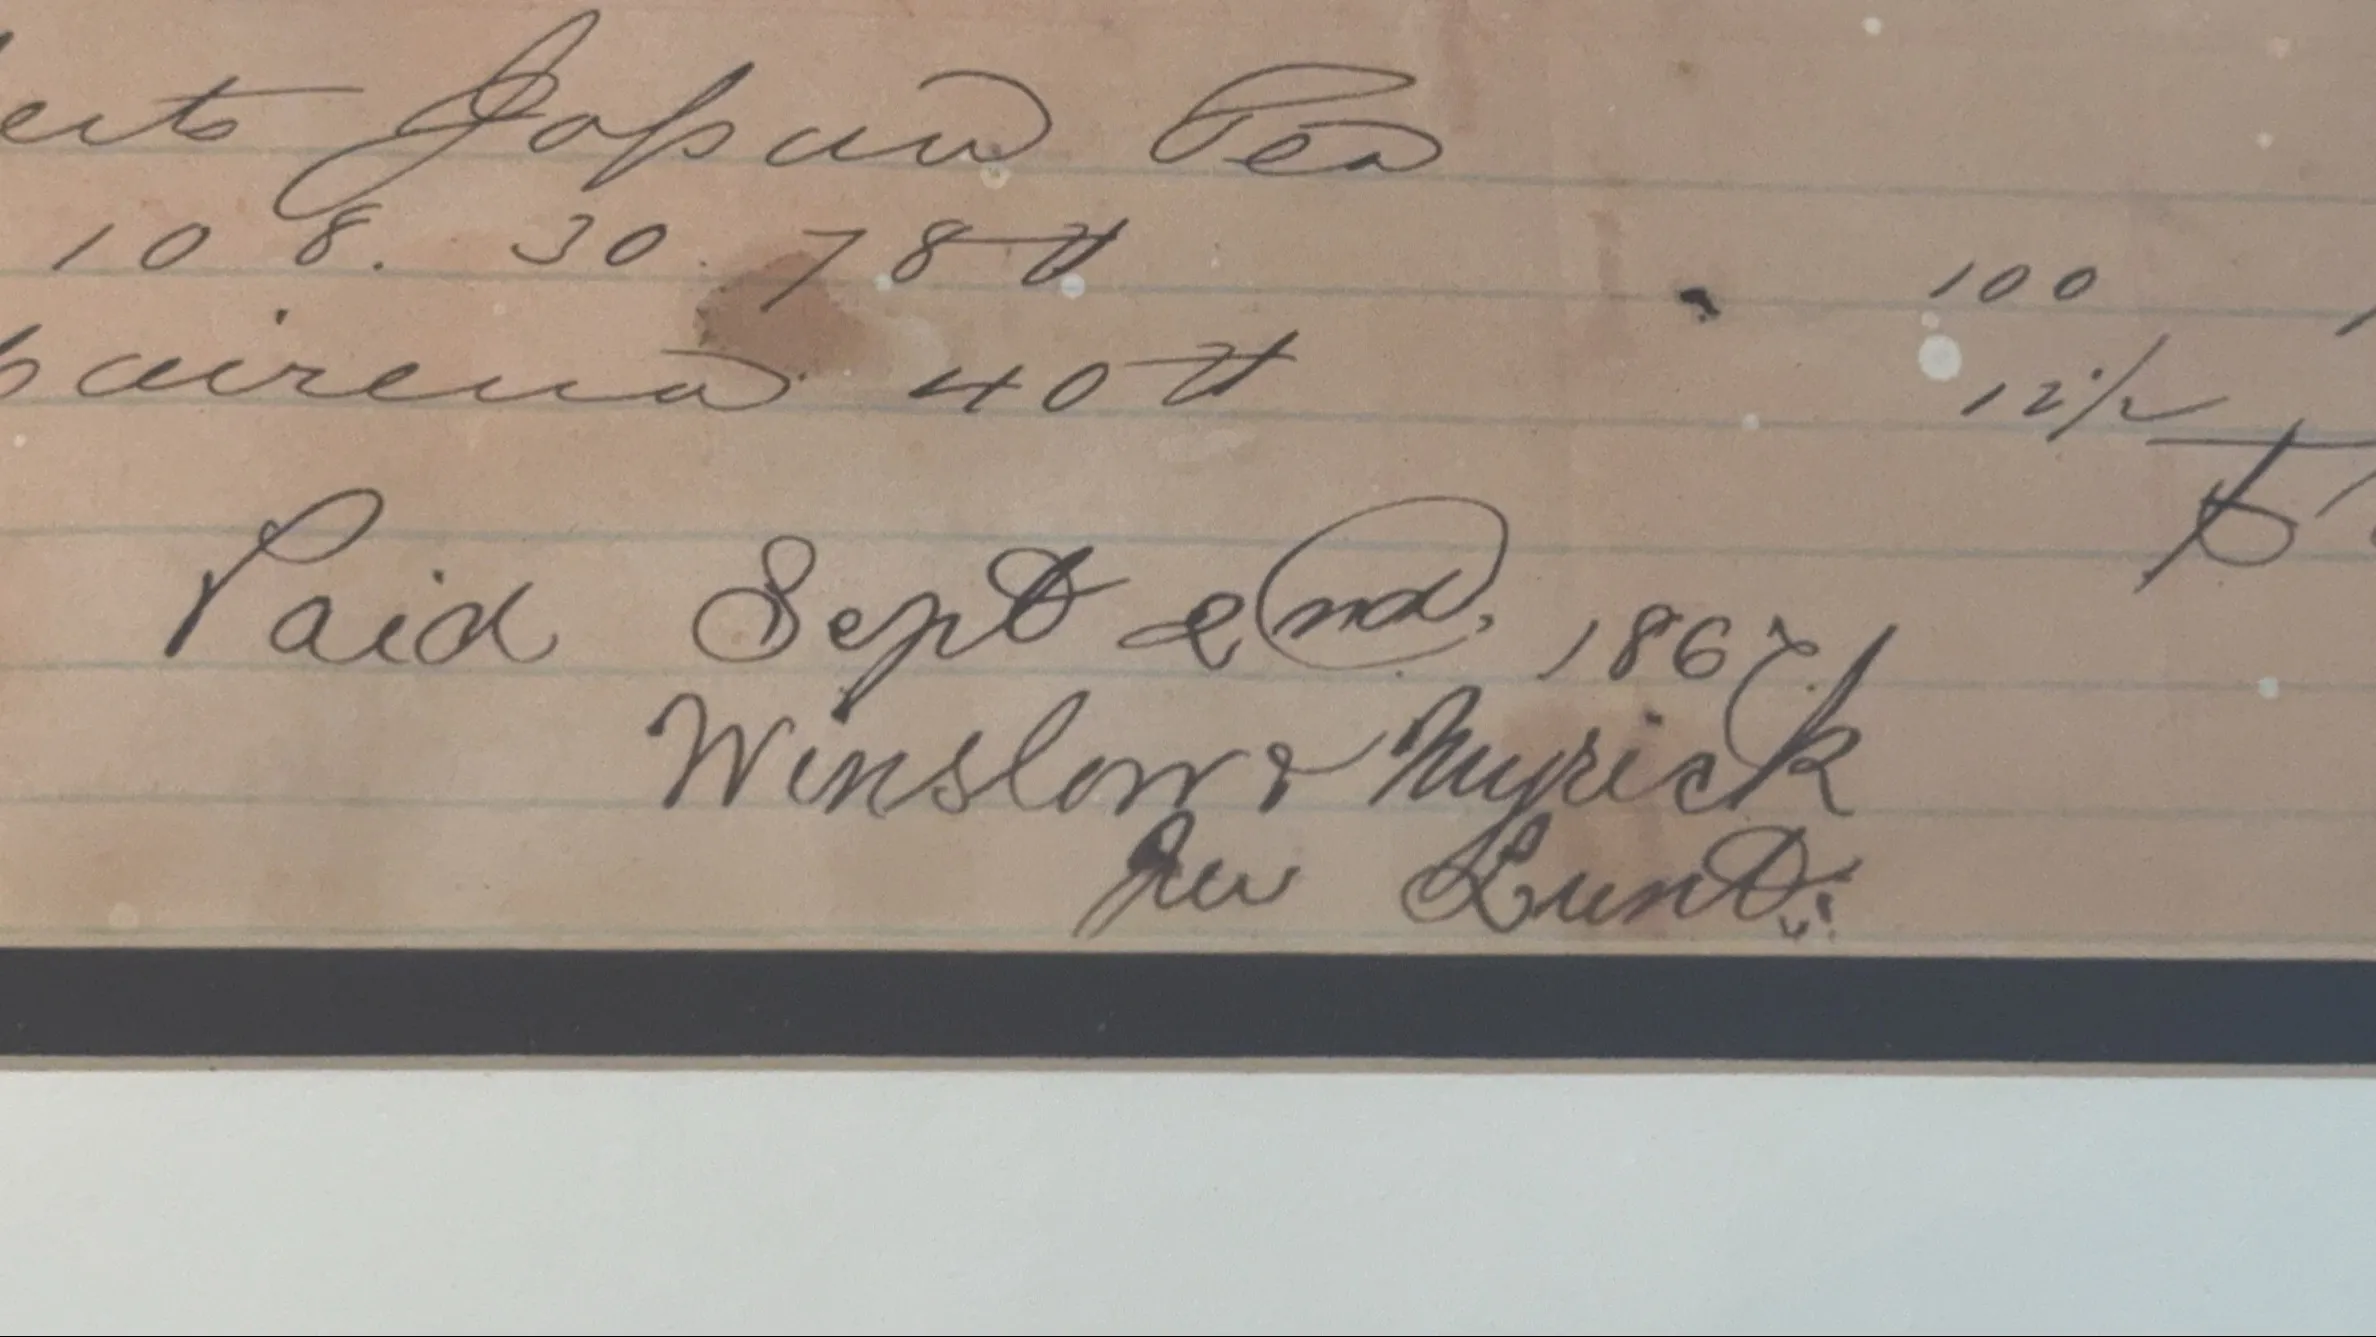 Japan Tea
10 8. 30. 78 lb
40 lb
100
12 1/2
$
Paid Sept 2nd, 1867
Winslow & Myrick
Per Lunt